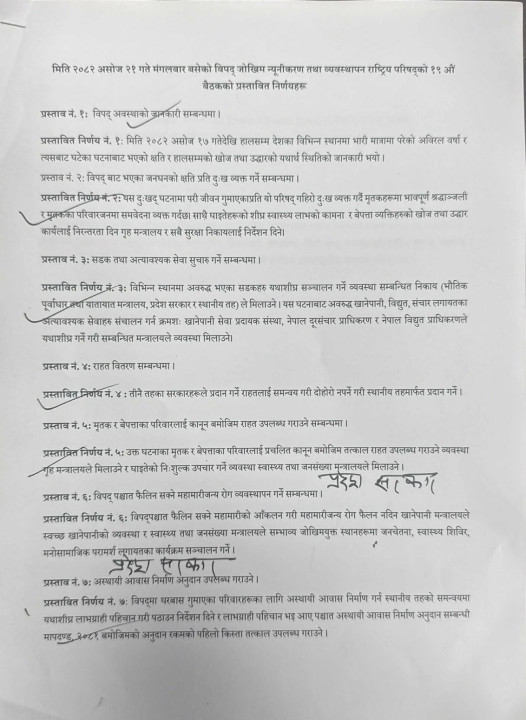 मिति २०८२ असोज २१ गते मंगलबार बसेको विपद् जोखिम न्यूनीकरण तथा व्यवस्थापन राष्ट्रिय परिषद्को १९ औं
बैठकको प्रस्तावित निर्णयहरू
प्रस्ताव नं. १: विपद् अवस्थाको जानकारी सम्बन्धमा ।
प्रस्तावित निर्णय नं. १: मिति २०८२ असोज १७ गतेदेखि हालसम्म देशका विभिन्न स्थानमा भारी मात्रामा परेको अविरल वर्षा र
त्यसबाट घटेका घटनाबाट भएको क्षति र हालसम्मको खोज तथा उद्धारको यथार्थ स्थितिको जानकारी भयो ।
प्रस्ताव नं. २: विपद् बाट भएका जनधनको क्षति प्रति दुःख व्यक्त गर्ने सम्बन्धमा ।
प्रस्तावित निर्णय नं. २: यस दुःखद् घटनामा परी जीवन गुमाएकाप्रति यो परिषद् गहिरो दुःख व्यक्त गर्दै मृतकहरूमा भावपूर्ण श्रद्धाञ्जली
र मृतकका परिवारजनमा समवेदना व्यक्त गर्दछ। साथै घाइतेहरूको शीघ्र स्वास्थ्य लाभको कामना र बेपत्ता व्यक्तिहरुको खोज तथा उद्धार
कार्यलाई निरन्तरता दिन गृह मन्त्रालय र सबै सुरक्षा निकायलाई निर्देशन दिने।
प्रस्ताव नं. ३: सडक तथा अत्यावश्यक सेवा सुचारु गर्ने सम्बन्धमा ।
प्रस्तावित निर्णय नं. ३: विभिन्न स्थानमा अवरुद्ध भएका सडकहरु यथाशीघ्र सञ्चालन गर्ने व्यवस्था सम्बन्धित निकाय (भौतिक
पूर्वाधार तथा यातायात मन्त्रालय, प्रदेश सरकार र स्थानीय तह) ले मिलाउने । यस घटनाबाट अवरुद्ध खानेपानी, विद्युत, संचार लगायतका
अत्यावश्यक सेवाहरु संचालन गर्न क्रमशः खानेपानी सेवा प्रदायक संस्था, नेपाल दूरसंचार प्राधिकरण र नेपाल विद्युत प्राधिकरणले
यथाशीघ्र गर्ने गरी सम्बन्धित मन्त्रालयले व्यवस्था मिलाउने।
प्रस्ताव नं. ४: राहत वितरण सम्बन्धमा ।
प्रस्तावित निर्णय नं. ४ : तीनै तहका सरकारहरूले प्रदान गर्ने राहतलाई समन्वय गरी दोहोरो नपर्ने गरी स्थानीय तहमार्फत प्रदान गर्ने ।
प्रस्ताव नं. ५: मृतक र बेपत्ताका परिवारलाई कानून बमोजिम राहत उपलब्ध गराउने सम्बन्धमा ।
प्रस्तावित निर्णय नं. ५: उक्त घटनाका मृतक र बेपत्ताका परिवारलाई प्रचलित कानून बमोजिम तत्काल राहत उपलब्ध गराउने व्यवस्था
गृह मन्त्रालयले मिलाउने र घाइतेको निःशुल्क उपचार गर्ने व्यवस्था स्वास्थ्य तथा जनसंख्या मन्त्रालयले मिलाउने ।
प्रदेश सरकार
प्रस्ताव नं. ६: विपद् पश्चात फैलिन सक्ने महामारीजन्य रोग व्यवस्थापन गर्ने सम्बन्धमा ।
प्रस्तावित निर्णय नं. ६: विपद्पश्चात फैलिन सक्ने महामारीको आँकलन गरी महामारीजन्य रोग फैलन नदिन खानेपानी मन्त्रालयले
स्वच्छ खानेपानीको व्यवस्था र स्वास्थ्य तथा जनसंख्या मन्त्रालयले सम्भाव्य जोखिमयुक्त स्थानहरूमा जनचेतना, स्वास्थ्य शिविर,
मनोसामाजिक परामर्श लगायतका कार्यक्रम सञ्चालन गर्ने ।
प्रदेश सरकार
प्रस्ताव नं. ७: अस्थायी आवास निर्माण अनुदान उपलब्ध गराउने ।
प्रस्तावित निर्णय नं. ७: विपद्मा घरबास गुमाएका परिवारहरूका लागि अस्थायी आवास निर्माण गर्न स्थानीय तहको समन्वयमा
यथाशीघ्र लाभग्राही पहिचान गरी पठाउन निर्देशन दिने र लाभग्राही पहिचान भइ आए पश्चात अस्थायी आवास निर्माण अनुदान सम्बन्धी
मापदण्ड, २०८१ बमोजिमको अनुदान रकमको पहिलो किस्ता तत्काल उपलब्ध गराउने ।